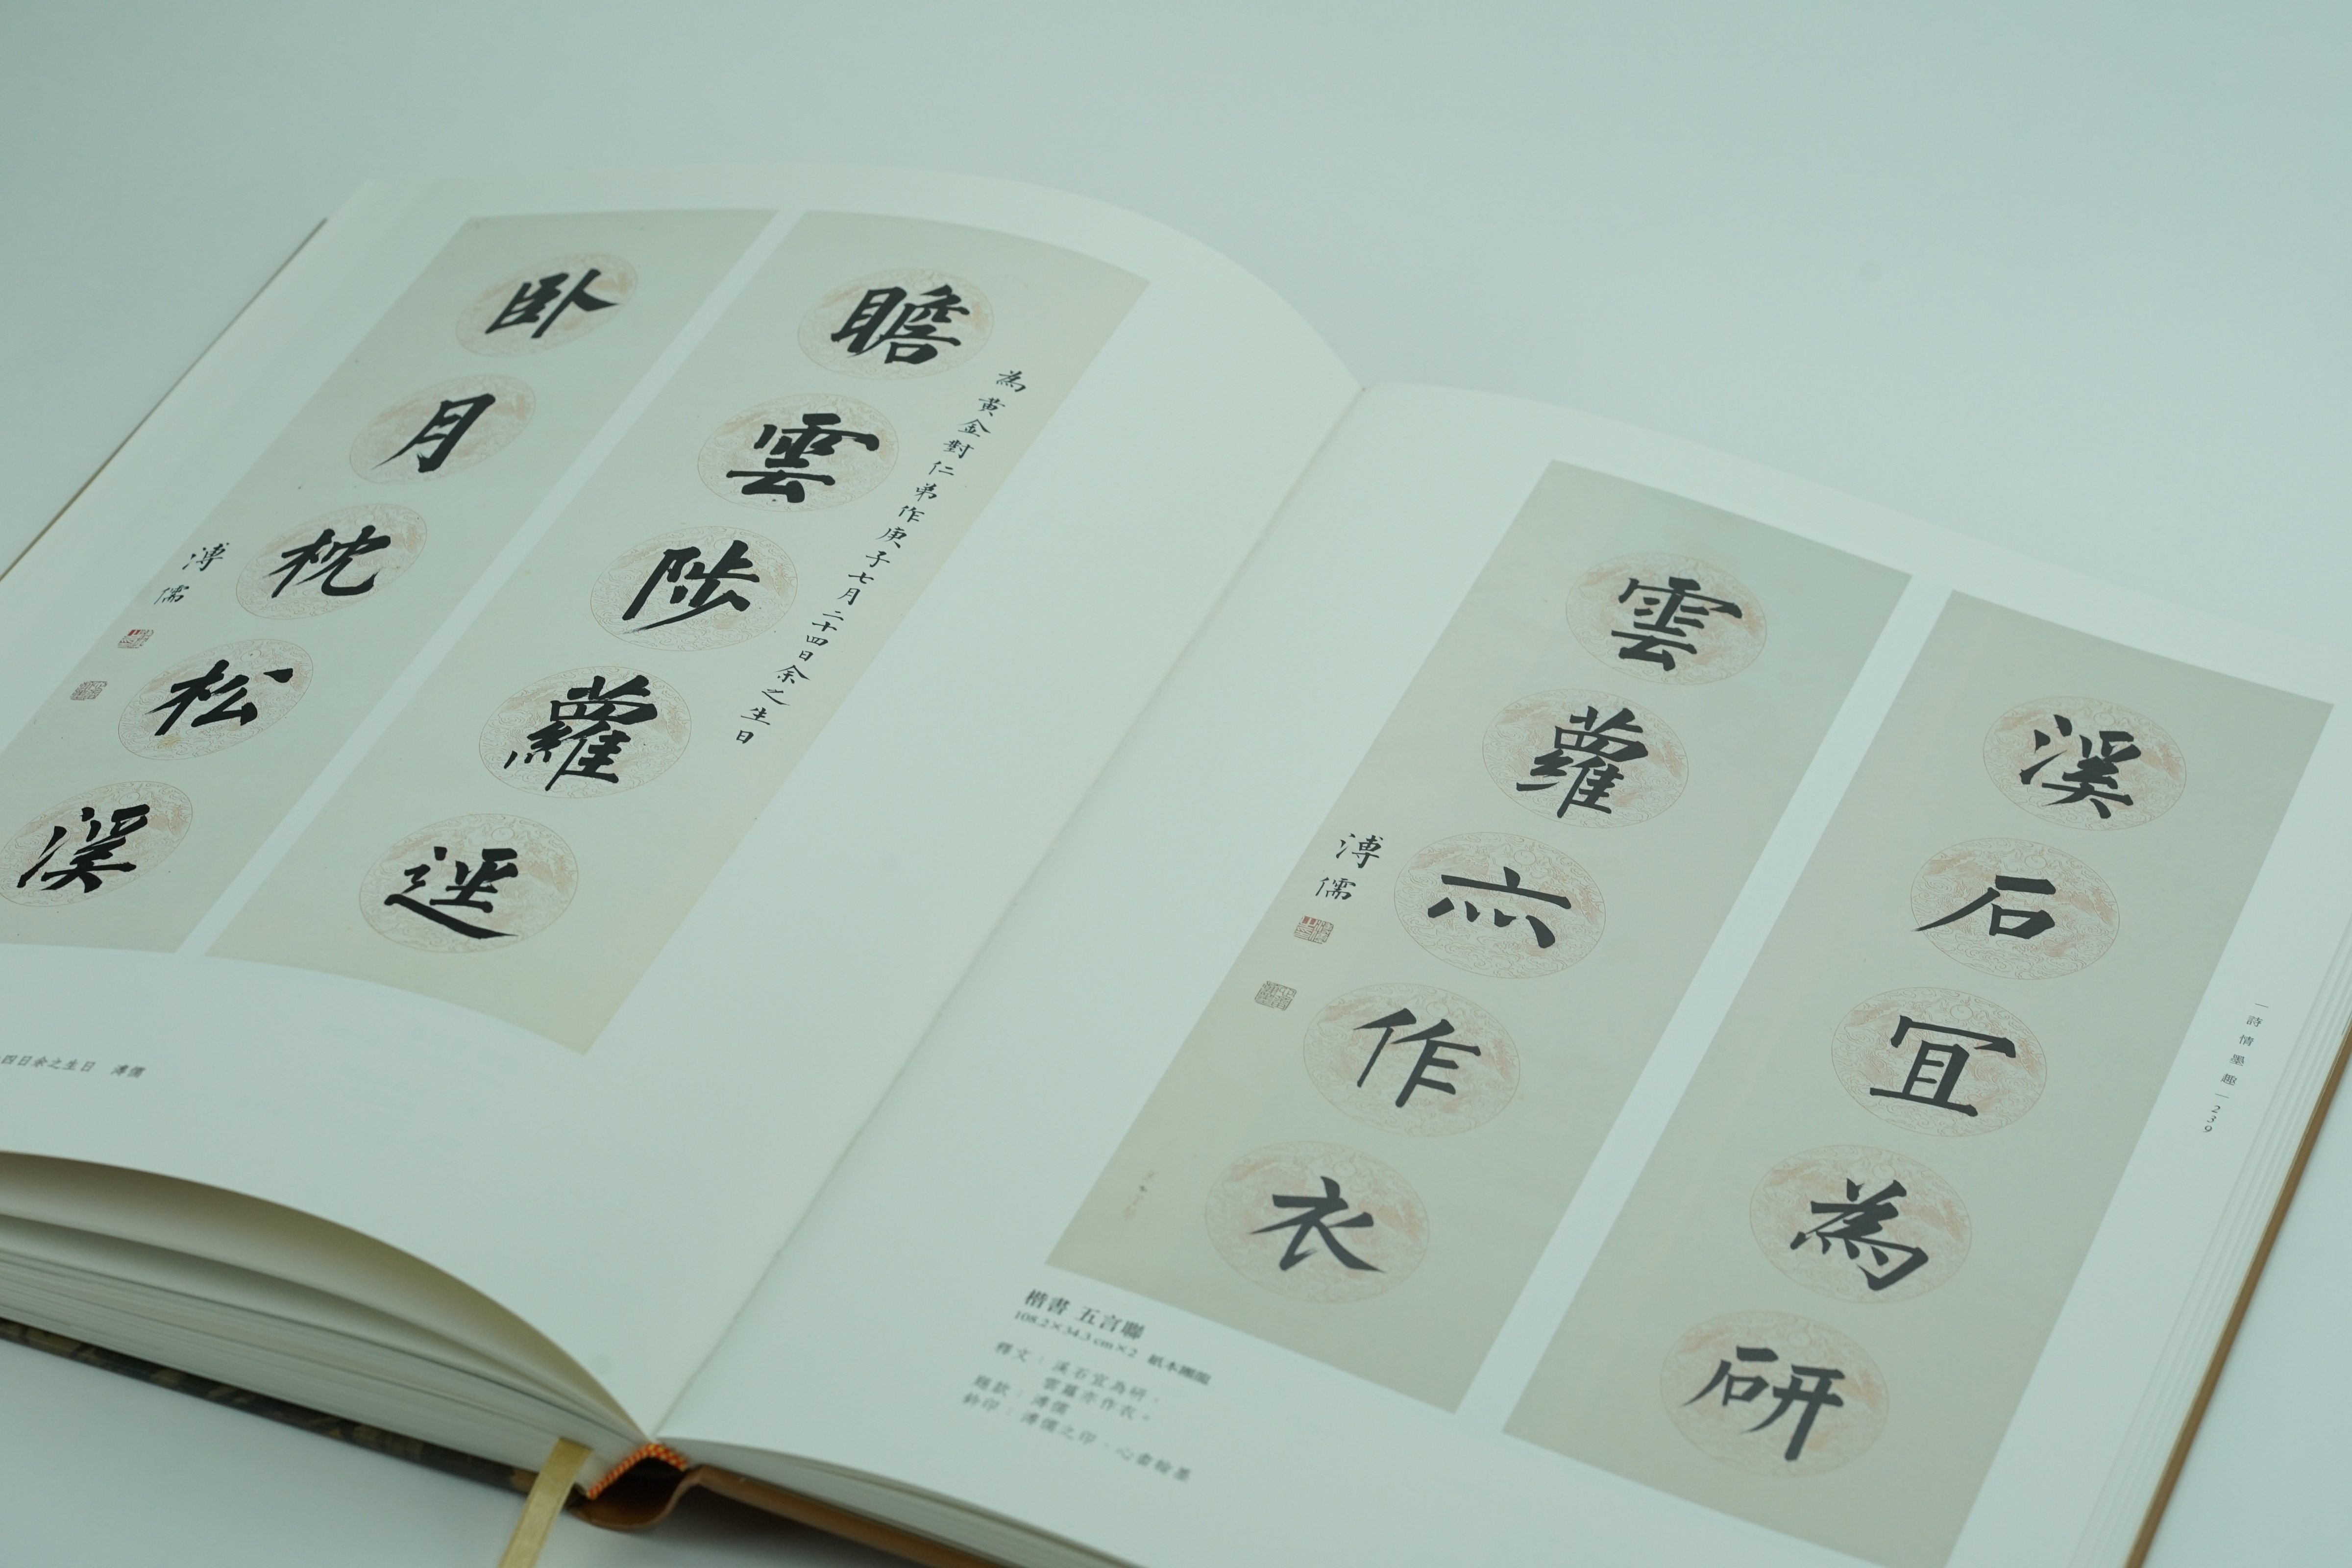 為黃金對仁弟作庚子七月二十四日余之生日
瞻雲陟蘿逕
卧月枕松溪
溥儒
四日余之生日　溥儒
溪石宜為研
雲蘿亦作衣
溥儒
楷書 五言聯
108.2×34.3 cm×2 紙本團龍
釋文：溪石宜為研，
雲蘿亦作衣。
題款：溥儒
鈐印：溥儒之印、心畬翰墨
｜詩情墨趣｜239